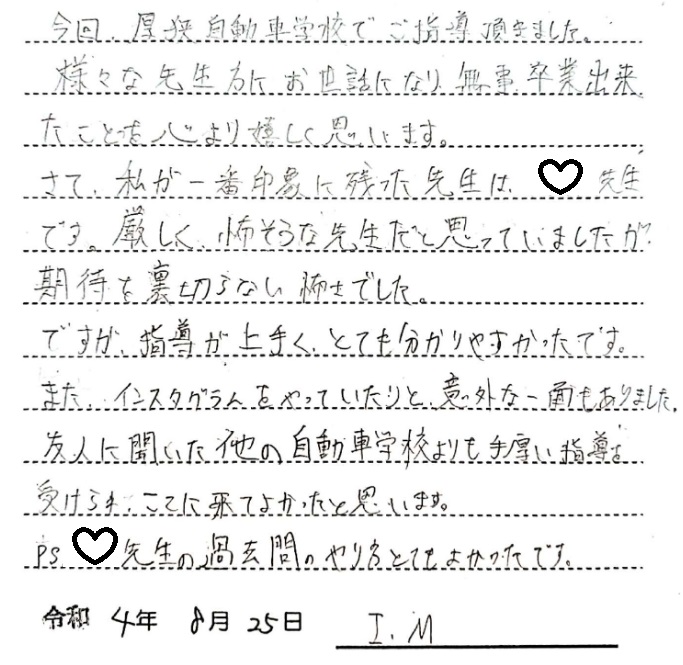 今回、厚狭自動車学校でご指導頂きました。
様々な先生方にお世話になり、無事卒業出来
たことを心より嬉しく思います。
さて、私が一番印象に残った先生は、♡先生
です。厳しく、怖そうな先生だと思っていましたが、
期待を裏切らない怖さでした。
ですが、指導が上手く、とても分かりやすかったです。
また、インスタグラムをやっていたりと、意外な一面もありました。
友人に聞いた他の自動車学校よりも手厚い指導を
受けられ、ここに来てよかったと思います。
PS ♡先生の過去問のやり方とてもよかったです。
令和 4年 8月 25日 I.M